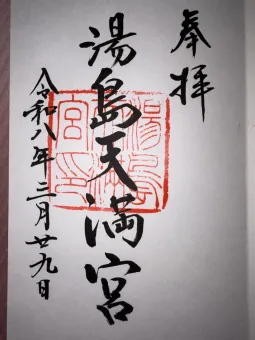 奉拝
湯島天満宮
令和八年三月廿九日